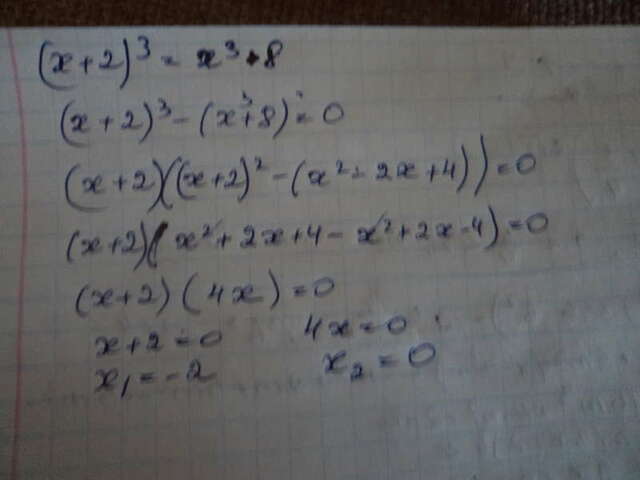 (x+2)³ = x³+8
(x+2)³ - (x³+8) = 0
(x+2)((x+2)² - (x² - 2x+4)) = 0
(x+2)(x²+2x+4 - x²+2x-4) = 0
(x+2)(4x) = 0
x+2=0 4x=0
x₁=-2 x₂=0